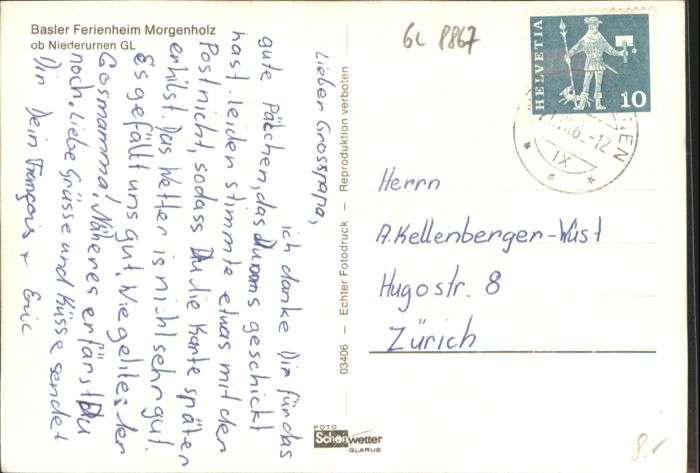 Basler Ferienheim Morgenholz
ob Niederurnen GL
GL 8867
HELVETIA
10
-12
IX
EN
Lieber Grosspapa,
ich danke Dir für das
gute Päckchen, das Du uns geschickt
hast. Leider stimmte etwas mit der
Post nicht, sodass Du die Karte später
erhilst. Das Wetter is nicht sehr gut.
Es gefällt uns gut. Wie geht es der
Grosmamma? Näheres erfärst Du
noch. Liebe Grüsse und Küsse sendet
Dir Dein François + Eric
03406 — Echter Fotodruck — Reproduktion verboten
Herrn
A. Kellenberger-Wüst
Hugostr. 8
Zürich
FOTO
Schönwetter
GLARUS
8.-